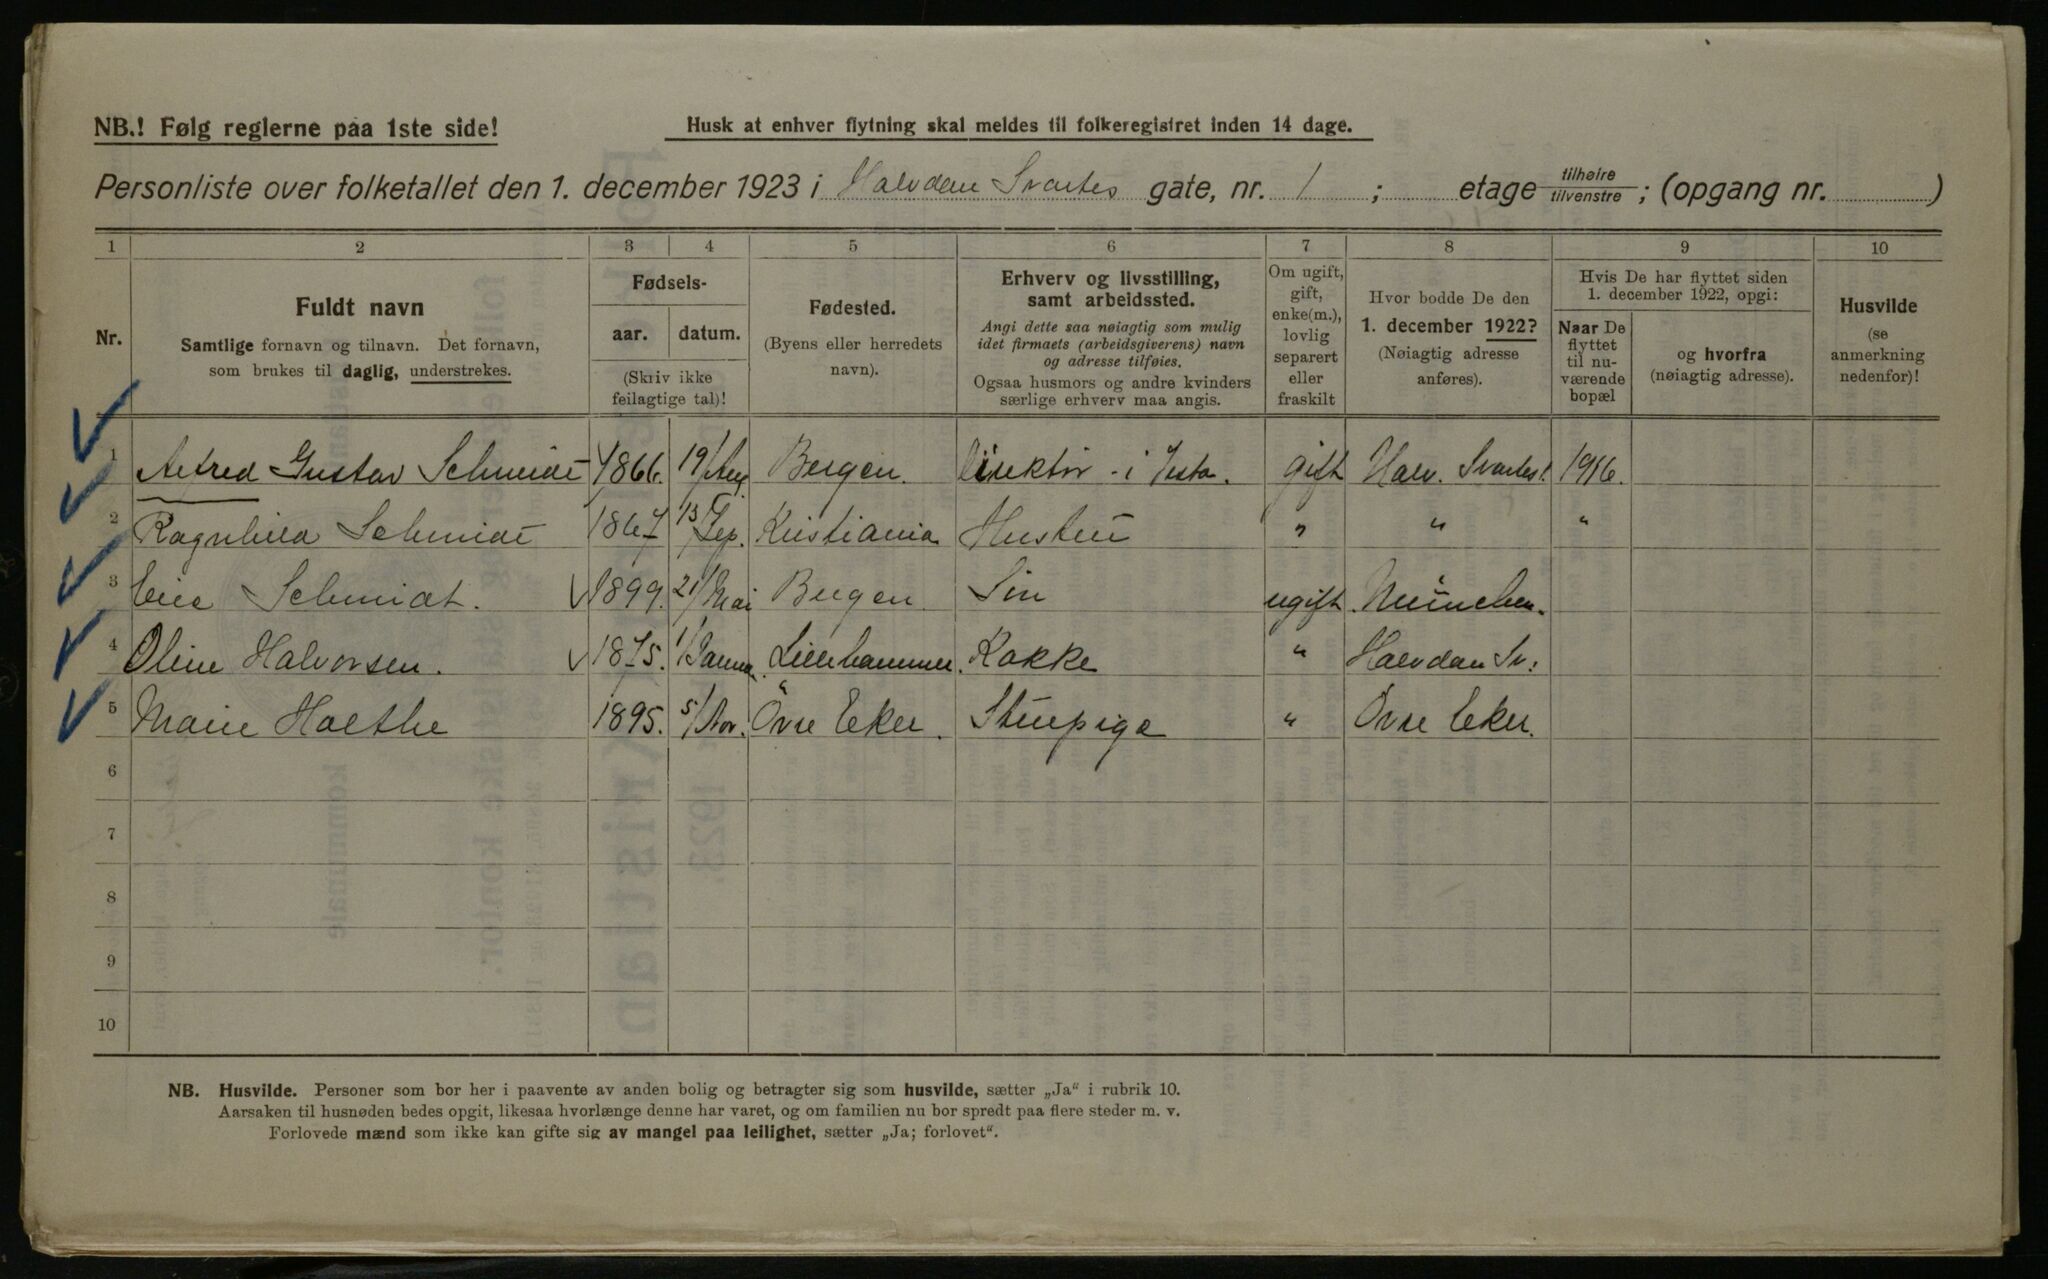 NB.! Følg reglerne paa 1ste side!
Husk at enhver flytning skal meldes til folkeregistret inden 14 dage.
Personliste over folketallet den 1. december 1923 i Halvdan Svartes gate, nr. 1 ; etage tilhøire tilvenstre ; (opgang nr. )
1 2 3 4 5 6 7 8 9 10
Nr.
Fuldt navn
Samtlige fornavn og tilnavn. Det fornavn,
som brukes til daglig, understrekes.
Fødsels-
aar. datum.
(Skriv ikke
feilagtige tal)!
Fødested.
(Byens eller herredets
navn).
Erhverv og livsstilling,
samt arbeidssted.
Angi dette saa nøiagtig som mulig
idet firmaets (arbeidsgiverens) navn
og adresse tilføies.
Ogsaa husmors og andre kvinders
særlige erhverv maa angis.
Om ugift,
gift,
enke(m.),
lovlig
separert
eller
fraskilt
Hvor bodde De den
1. december 1922?
(Nøiagtig adresse
anføres).
Hvis De har flyttet siden
1. december 1922, opgi:
Naar De
flyttet
til nu-
værende
bopæl
og hvorfra
(nøiagtig adresse).
Husvilde
(se
anmerkning
nedenfor)!
1 Alfred Gustav Schmidt 1866. 19/Aug Bergen. Direktør i gift Halv. Svartes 1. 1916.
2 Ragnhild Schmidt 1867 13/Sep. Kristiania Hustru " " "
3 Schmidt. 1899. 21/Mai Bergen Sön ugift München.
4 Oline Halvorsen. 1875. 1/Januar. Lillehammer. Kokke " Halvdan Sv.
5 Marie Holthe 1895. 5/Nov. Övre Eker. Stuepige " Övre Eker.
6
7
8
9
10
NB. Husvilde. Personer som bor her i paavente av anden bolig og betragter sig som husvilde, sætter „Ja“ i rubrik 10.
Aarsaken til husnøden bedes opgit, likesaa hvorlænge denne har varet, og om familien nu bor spredt paa flere steder m. v.
Forlovede mænd som ikke kan gifte sig av mangel paa leilighet, sætter „Ja; forlovet“.